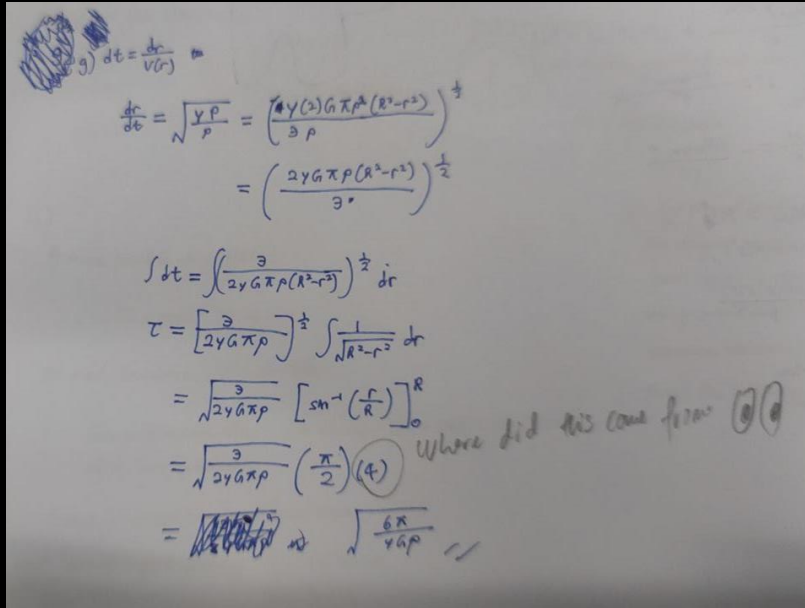 g) dt = dr/v(r)
dr/dt = √(γP/ρ) = (γ(2)Gπρ²(R²-r²)/3ρ)^(1/2)
= (2γGπρ(R²-r²)/3)^(1/2)
∫dt = ∫(3/2γGπρ(R²-r²))^(1/2) dr
τ = [3/2γGπρ]^(1/2) ∫ 1/√(R²-r²) dr
= √(3/2γGπρ) [sin⁻¹(r/R)]₀ᴿ
= √(3/2γGπρ) (π/2)(4) where did this come from
= √(6π/γGρ)